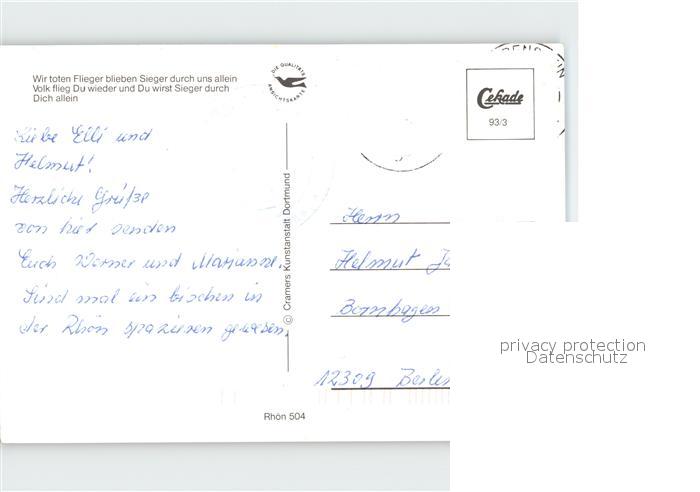 Wir toten Flieger blieben Sieger durch uns allein
Volk flieg Du wieder und Du wirst Sieger durch
Dich allein
DIE QUALITÄTS
ANSICHTSKARTE
Cekade
93/3
Liebe Elli und
Helmut!
Herzliche Grüße
von hier senden
Euch Werner und Marianne.
Sind mal ein bischen in
der Rhön spazieren gewesen.
© Cramers Kunstanstalt Dortmund
Herrn
Helmut
Bornhagen
12309 Berlin
Rhön 504
privacy protection
Datenschutz